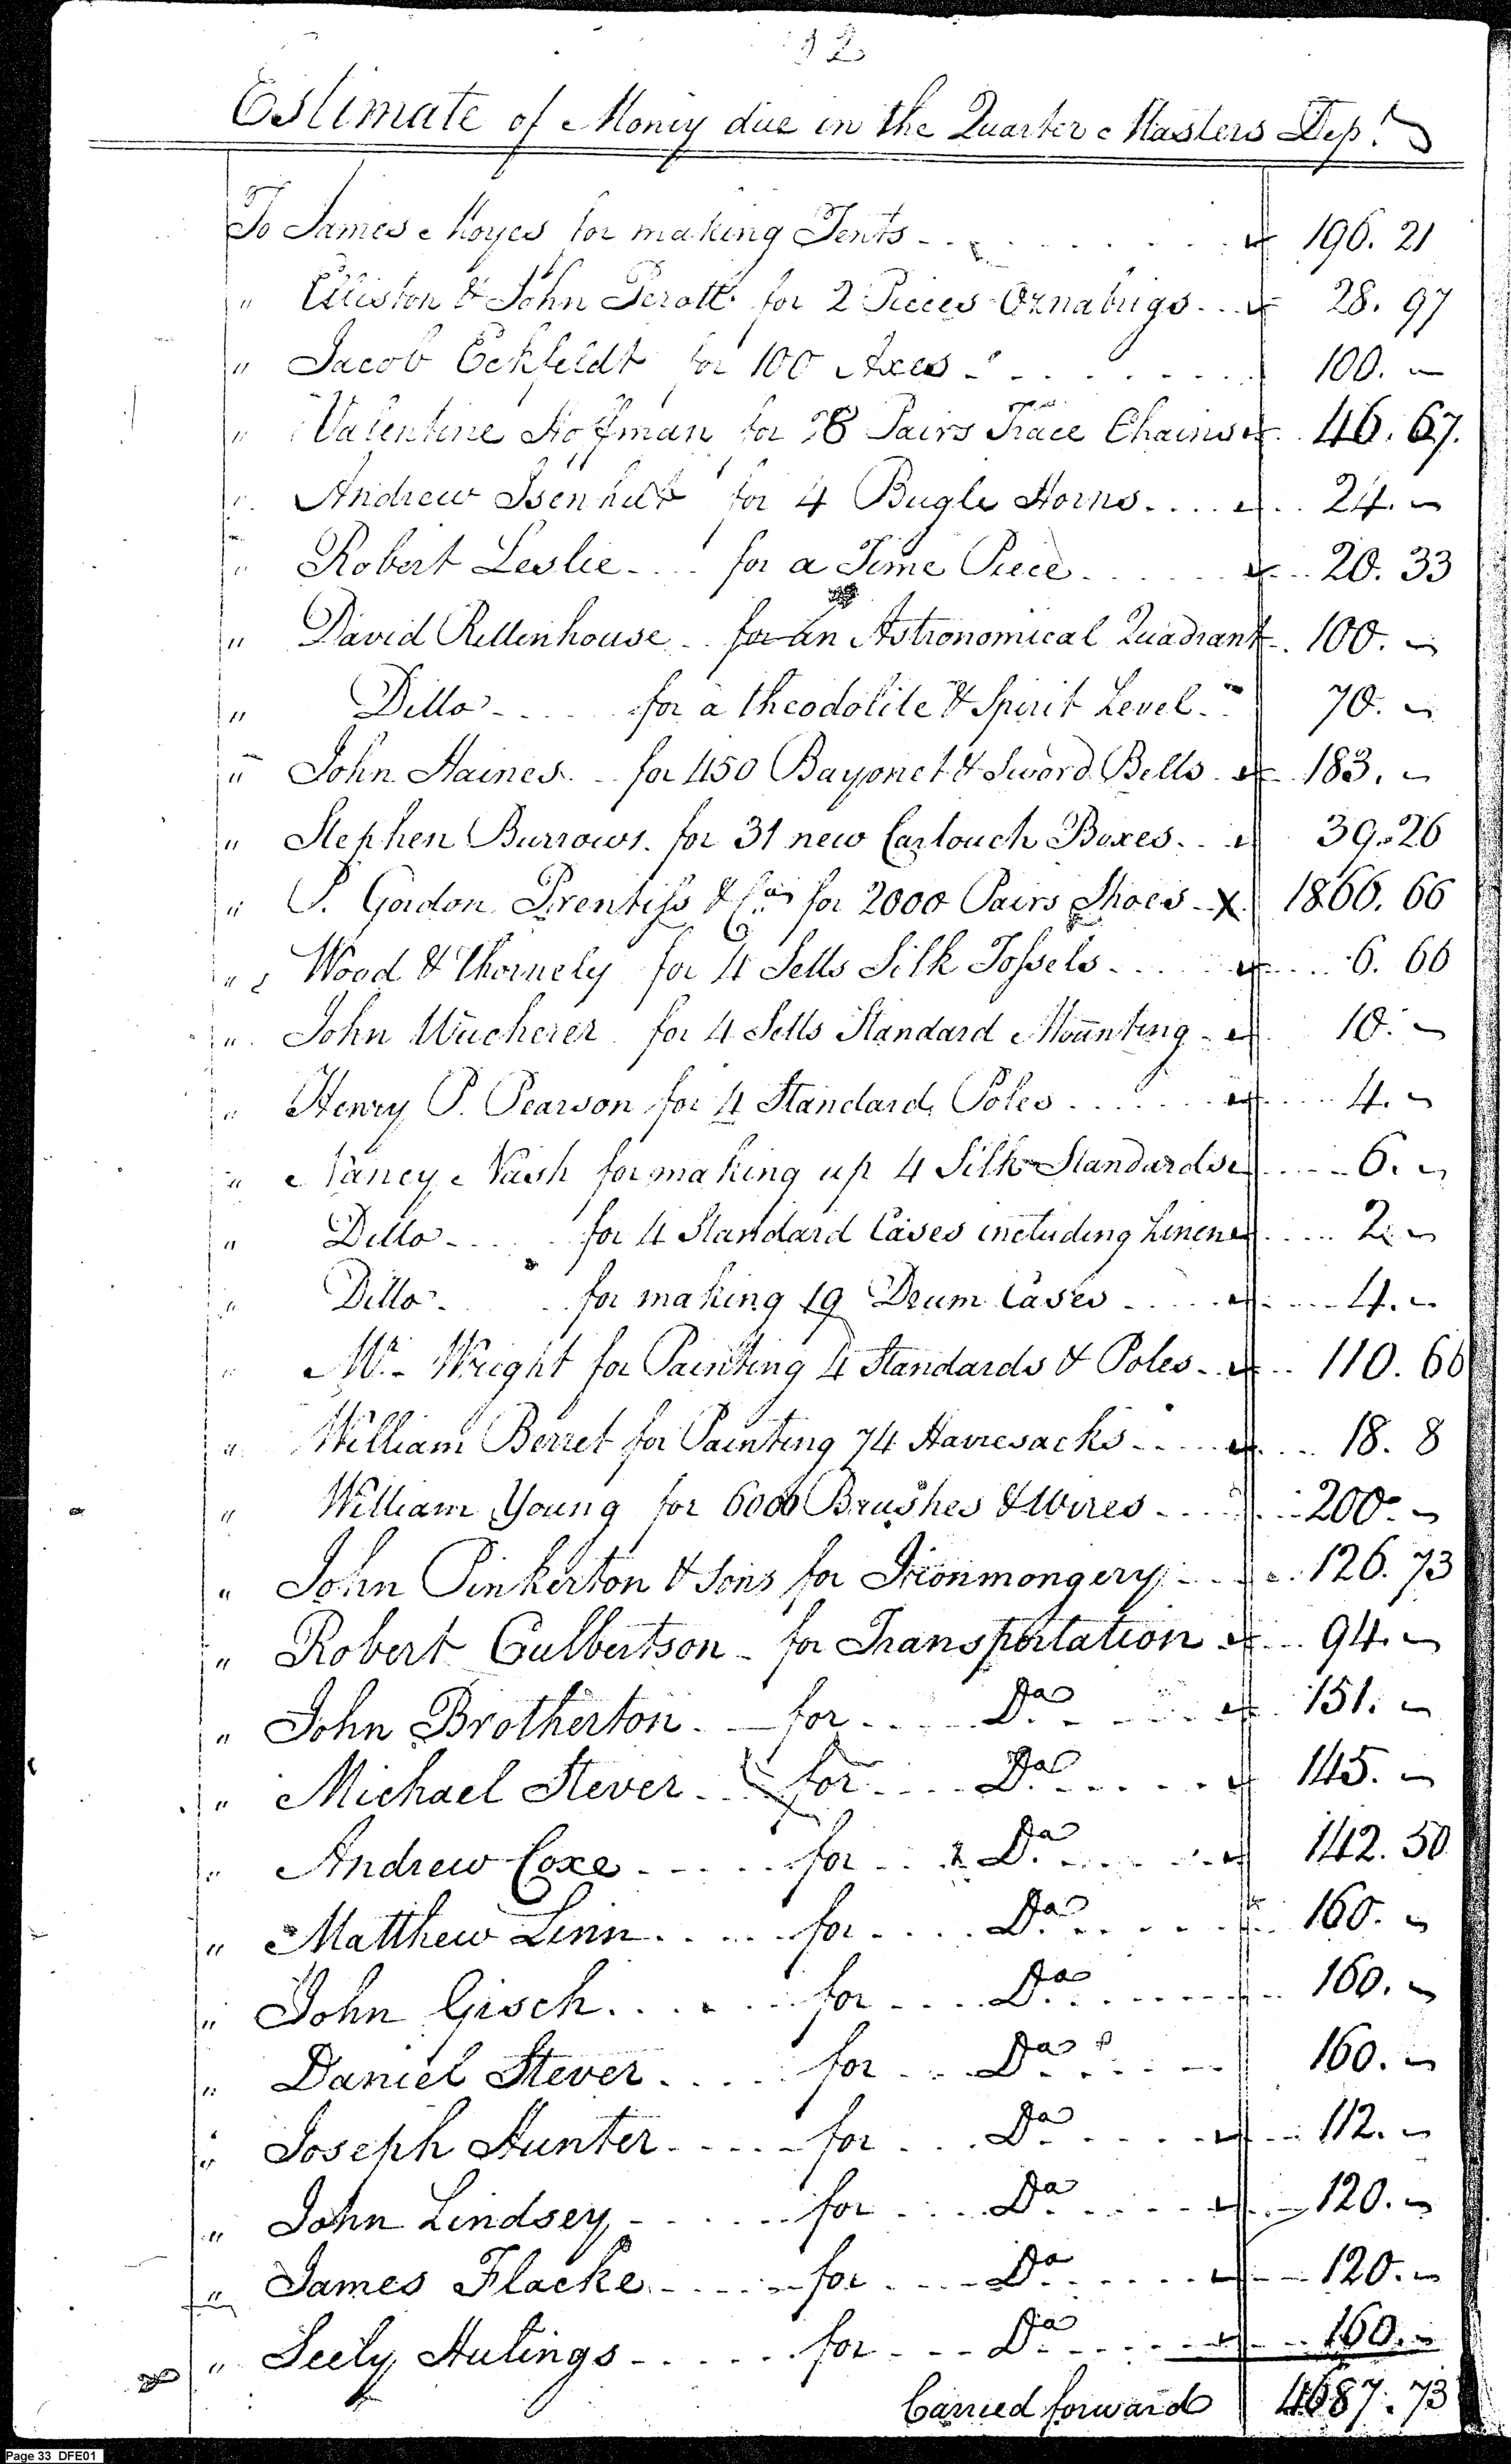 32
Estimate of Money due in the Quarter Masters Dept.
To James Moyes for making Tents - - . . . . . . 196. 21
" Elliston & John Perott for 2 Pieces Oznabrigs . . . 28. 97
" Jacob Eckfeldt for 100 Axes - . . . . . . 100. —
" Valentine Hoffman for 28 Pairs Trace Chains . . 46. 67.
" Andrew Isenhut for 4 Bugle Horns . . . . . . 24. —
" Robert Leslie - . . . for a Time Piece . . . . . . 20. 33
" David Rittenhouse . . for an Astronomical Quadrant - . 100. —
" Ditto - . . . . for a theodolite & Spirit Level . . 70. —
" John Haines . . for 450 Bayonet & Sword Belts . 183. —
" Stephen Burrows . for 31 new Cartouch Boxes . . . 39. 26
" P. Gordon Prentiss & Co. for 2000 Pairs Shoes - X 1866. 66
" Wood & Thornely for 4 Setts Silk Tossels - . . . . . . 6. 66
" John Wucherer for 4 Setts Standard Mounting - 10. —
" Henry P. Pearson for 4 Standard Poles . . . . . . . 4. —
" Nancy Nash for making up 4 Silk Standards . . . . 6. —
" Ditto - . . . for 4 Standard Cases including Linen . . . . 2. —
" Ditto . . . for making 19 Drum Cases - . . . . . . . 4. —
" Mr. Wright for Painting 4 Standards & Poles - . . 110. 66
" William Berret for Painting 74 Haversacks - . . . . . 18. 8
" William Young for 6000 Brushes & Wires - . . . . 200. —
" John Pinkerton & Sons for Ironmongery - . . . 126. 73
" Robert Culbertson - for Transportation . . 94. —
" John Brotherton . — for . . . . Do. - . . . . 151. —
" Michael Stever . . . for . . . . Do. . . . . . 145. —
" Andrew Coxe - . . . . for . . . Do. . . . . . 142. 50
" Matthew Linn . . . . . for . . . . Do. . . . . . 160. —
" John Gisch . . . . . . for . . . . Do. . . . . . . 160. —
" Daniel Stever . . . . . for . . . Do. . . . . . 160. —
" Joseph Hunter - . . . - for . . . Do. . . . . . 112. —
" John Lindsey - . . . . . for . . . . Do. . . . . . 120. —
" James Flacke - . . . . for . . . . Do. . . . . . 120. —
" Seely Hulings - . . . . . for . . . . Do. . . . . . 160. —
Carried forward 4687. 73
Page 33 DFE01